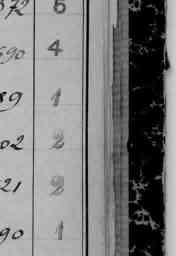 872 5
690 4
89 1
02 2
21 2
90 1